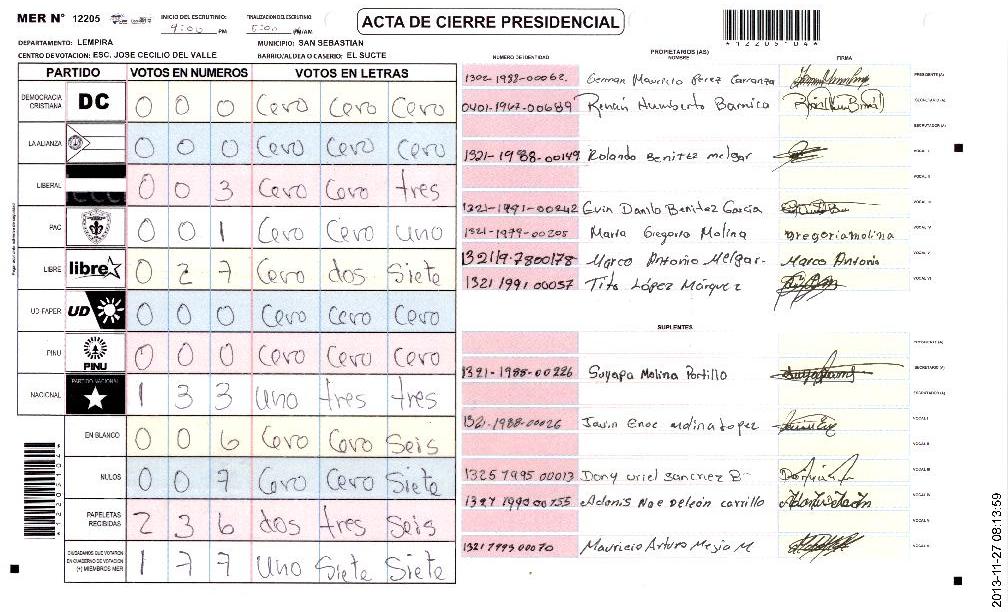 MER N° 12205
INICIO DEL ESCRUTINIO:
4:00 PM
FINALIZACION DEL ESCRUTINIO
5:00 PM/AM
ACTA DE CIERRE PRESIDENCIAL
DEPARTAMENTO: LEMPIRA
MUNICIPIO: SAN SEBASTIAN
CENTRO DE VOTACION: ESC. JOSE CECILIO DEL VALLE
BARRIO/ALDEA O CASERIO: EL SUCTE
*12205104*
PARTIDO VOTOS EN NUMEROS VOTOS EN LETRAS
DEMOCRACIA CRISTIANA DC 0 0 0 Cero Cero Cero
LA ALIANZA 0 0 0 Cero Cero Cero
LIBERAL 0 0 3 Cero Cero tres
PAC 0 0 1 Cero Cero uno
LIBRE libre 0 2 7 Cero dos Siete
UD FAPER UD 0 0 0 Cero Cero Cero
PINU PINU 0 0 0 Cero Cero Cero
NACIONAL PARTIDO NACIONAL 1 3 3 Uno tres tres
EN BLANCO 0 0 6 Cero Cero Seis
NULOS 0 0 7 Cero Cero Siete
PAPELETAS RECIBIDAS 2 3 6 dos tres Seis
CIUDADANOS QUE VOTARON EN CUADERNO DE VOTACION (+) MIEMBROS MER 1 7 7 Uno Siete Siete
PROPIETARIOS (AS)
NUMERO DE IDENTIDAD NOMBRE FIRMA
1302-1988-00062 German Mauricio Perez Carranza PRESIDENTE (A)
0401-1967-00689 Renán Humberto Barnica SECRETARIO (A)
ESCRUTADOR (A)
1321-1988-00149 Rolando Benitez melgar VOCAL I
VOCAL II
1321-1991-00242 Evin Danilo Benitez García VOCAL III
1321-1979-00205 Maria Gregoria Molina gregoria molina VOCAL IV
132119-7800178 Marco Antonio Melgar- Marco Antonio VOCAL V
1321 1991 00057 Tito López Márquez VOCAL VI
SUPLENTES
PRESIDENTE (A)
1321-1988-00226 Suyapa Molina Portillo SECRETARIO (A)
ESCRUTADOR (A)
1321-1988-00026 Javin Enoc molina Lopez VOCAL I
VOCAL II
1325 7995 00013 Dony uriel sanchez B VOCAL III
1327 1990 00755 Adonis Noe Deleón carrillo VOCAL IV
VOCAL V
1321 7995 00070 Mauricio Arturo Mejia M VOCAL VI
2013-11-27 08:13:59